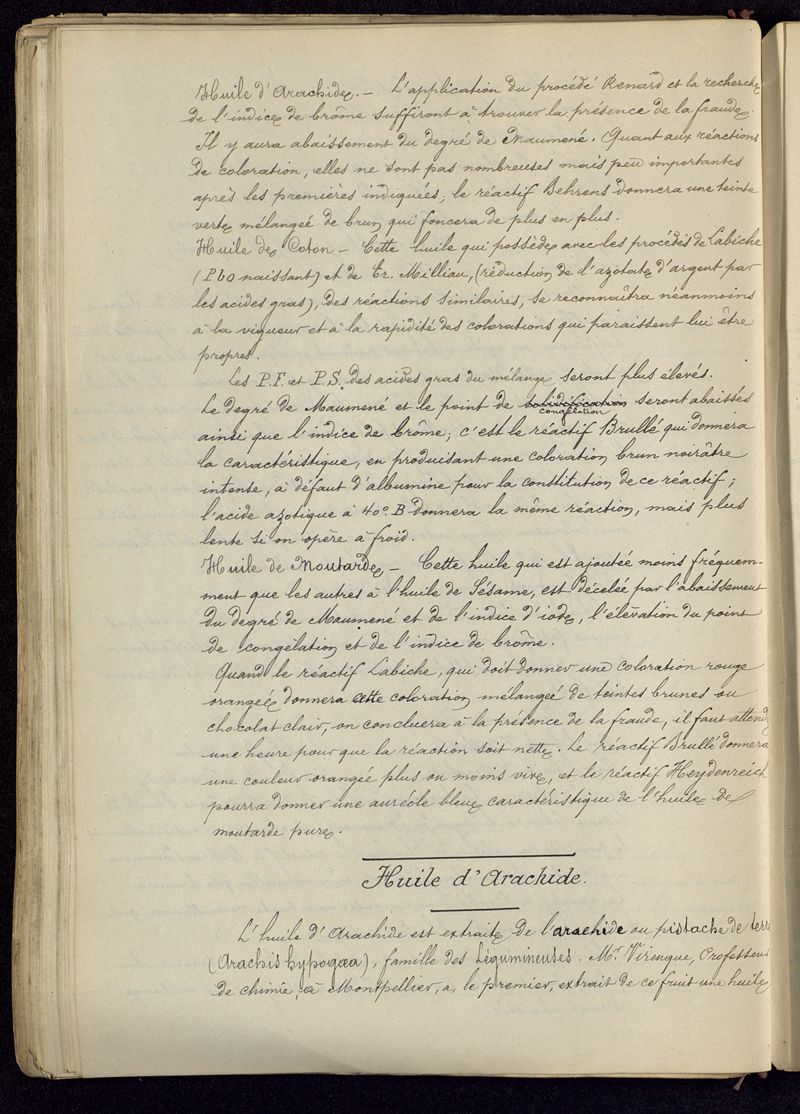 Huile d'Arachide. — L'application du procédé Renard et la recherche
de l'indice de brôme suffiront à trouver la présence de la fraude.
Il y aura abaissement du degré de Maumené. Quant aux réactions
de coloration, elles ne sont pas nombreuses mais peu importantes
après les premières indiquées; le réactif Behrens donnera une teinte
verte mélangée de brun qui foncera de plus en plus.
Huile de Coton — Cette huile qui possède avec les procédés de Labiche
(Pbo naissant) et de Er. Milliau, (réduction de l'azotate d'argent par
les acides gras), des réactions similaires, se reconnaîtra néanmoins
à la vigueur et à la rapidité des colorations qui paraissent lui être
propres.
Les P.F. et P.S. des acides gras du mélange seront plus élevés.
Le degré de Maumené et le point de solidification congélation seront abaissés
ainsi que l'indice de brôme; c'est le réactif Brullé qui donnera
la caractéristique, en produisant une coloration brun noirâtre
intense, à défaut d'albumine pour la constitution de ce réactif;
l'acide azotique à 40° B donnera la même réaction, mais plus
lente si on opère à froid.
Huile de Moutarde — Cette huile qui est ajoutée moins fréquem-
ment que les autres à l'huile de Sésame, est décelée par l'abaissement
du degré de Maumené et de l'indice d'iode, l'élévation du point
de congélation et de l'indice de brôme.
Quand le réactif Labiche, qui doit donner une coloration rouge
orangée donnera cette coloration mélangée de teintes brunes ou
chocolat clair, on concluera à la présence de la fraude, il faut attend
une heure pour que la réaction soit nette. Le réactif Brullé donnera
une couleur orangée plus ou moins vive, et le réactif Heydenreich
pourra donner une auréole bleue caractéristique de l'huile de
moutarde pure.
Huile d'Arachide.
L'huile d'Arachide est extraite de l'arachide ou pistache de terre
(Arachis hypogæa), famille des Légumineuses. Mr Virenque, Professeur
de chimie, à Montpellier, a, le premier, extrait de ce fruit une huile